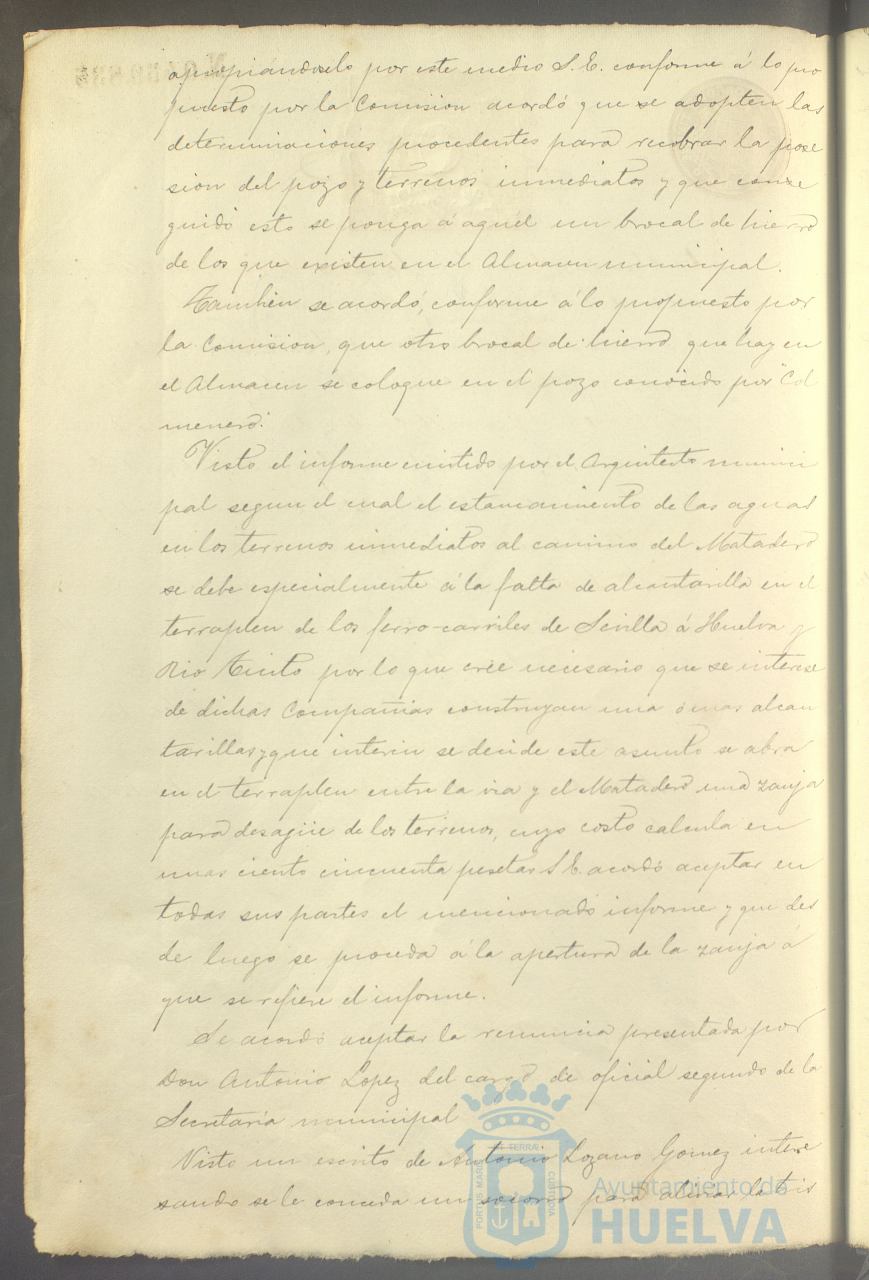 apropiándoselo por este medio S. E. conforme á lo pro
puesto por la Comision acordó que se adopten las
determinaciones procedentes para recobrar la pose
sion del pozo y terrenos inmediatos y que conse
guido esto se ponga á aquel un brocal de hierro
de los que existen en el Almacen municipal.
Tambien se acordó, conforme á lo propuesto por
la Comision, que otro brocal de hierro que hay en
el Almacen se coloque en el pozo conocido por "Col
menero".
Visto el informe emitido por el Arquitecto munici
pal segun el cual el estancamiento de las aguas
en los terrenos inmediatos al camino del Matadero
se debe especialmente á la falta de alcantarilla en el
terraplen de los ferro-carriles de Sevilla á Huelva y
Rio Tinto por lo que cree necesario que se interese
de dichas Compañias construyan una ó mas alcan
tarillas y que interin se decide este asunto se abra
en el terraplen entre la via y el Matadero una zanja
para desagüe de los terrenos, cuyo costo calcula en
unas ciento cincuenta pesetas S. E. acordó aceptar en
todas sus partes el mencionado informe y que des
de luego se proceda á la apertura de la zanja á
que se refiere el informe.
Se acordó aceptar la renuncia presentada por
Don Antonio Lopez del cargo de oficial segundo de la
Secretaría municipal
Visto un escrito de Antonio Lozano Gomez intere
sando se le conceda un socorro para aliviar la tris
PORTUS MARIS ET TERRÆ CUSTODIA
Ayuntamiento de
HUELVA